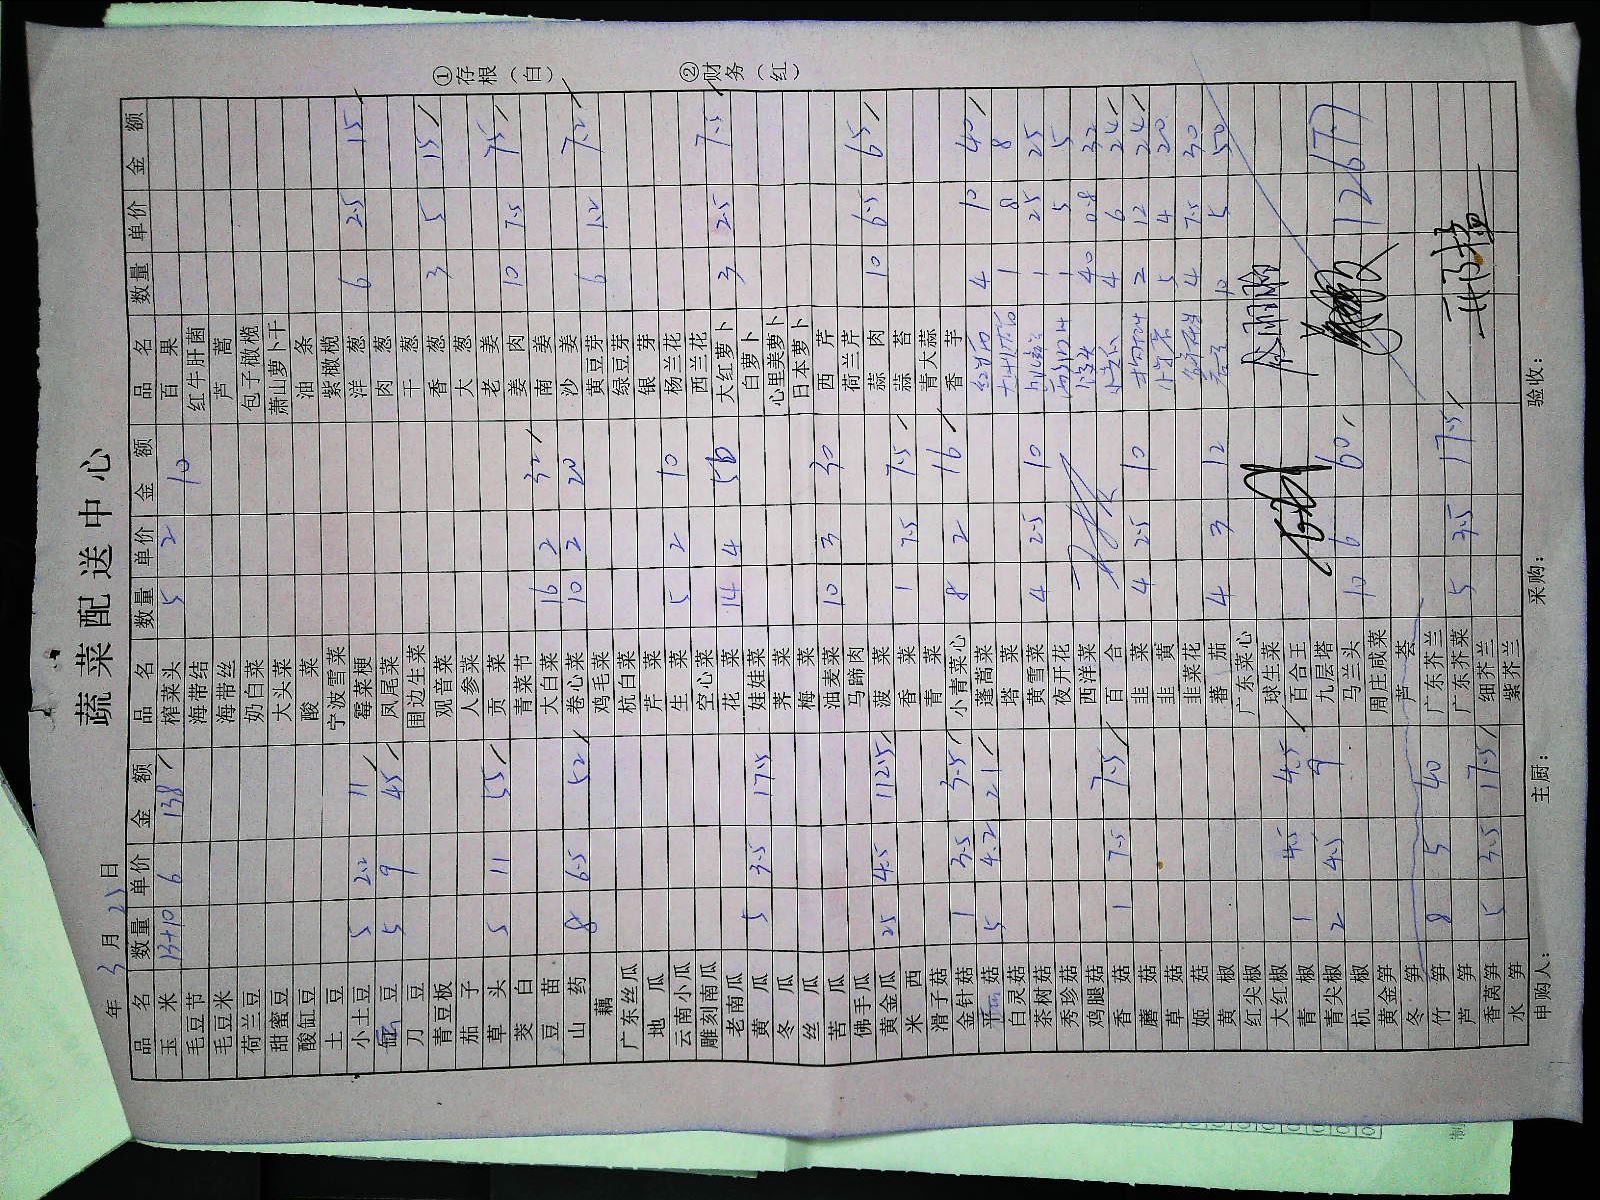 蔬菜配送中心
年 3 月 25 日
品名 数量 单价 金额 品名 数量 单价 金额 品名 数量 单价 金额
玉米 13+10 6 138 榨菜头 5 2 10 百果
毛豆节 海带结 红牛肝菌
毛豆米 海带丝 芦蒿
荷兰豆 奶白菜 包子橄榄
甜蜜豆 大头菜 萧山萝卜干
酸缸豆 酸菜 油条
土豆 宁波雪菜 紫橄榄
小土豆 5 2.2 11 霉菜梗 洋葱 6 2.5 15
豆 5 9 45 凤尾菜 肉葱
刀豆 围边生菜 干葱
青豆板 观音菜 香葱 3 5 15
茄子 人参菜 大葱
草头 5 11 55 贡菜 老姜
茭白 青菜节 姜肉 10 7.5 75
豆苗 大白菜 16 2 32 南姜
山药 8 6.5 52 卷心菜 10 2 20 沙姜
藕 鸡毛菜 黄豆芽 6 1.2 7.2
广东丝瓜 杭白菜 绿豆芽
地瓜 芹菜 银芽
云南小瓜 生菜 5 2 10 杨兰花
雕刻南瓜 空心菜 西兰花
老南瓜 花菜 14 4 56 大红萝卜 3 2.5 7.5
黄瓜 5 3.5 17.5 娃娃菜 白萝卜
冬瓜 荠菜 心里美萝卜
丝瓜 梅菜 日本萝卜
苦瓜 油麦菜 10 3 30 西芹
佛手瓜 马蹄肉 荷兰芹
黄金瓜 25 4.5 112.5 菠菜 蒜肉 10 6.5 65
米西 香菜 1 7.5 7.5 蒜苔
滑子菇 青菜 青大蒜
金针菇 1 3.5 3.5 小青菜心 8 2 16 香芋
平菇 5 4.2 21 蓬蒿菜 4 10 40
白灵菇 塔菜 1 8 8
茶树菇 黄雪菜 4 2.5 10 1 25 25
秀珍菇 夜开花 1 5 5
鸡腿菇 西洋菜 40 0.8 32
香菇 1 7.5 7.5 百合 4 6 24
蘑菇 韭菜 4 2.5 10 2 12 24
草菇 韭黄 5 4 20
姬菇 韭菜花 4 7.5 30
黄椒 蕃茄 4 3 12 10 5 50
红尖椒 广东菜心
大红椒 球生菜
青椒 1 4.5 4.5 百合王
青尖椒 2 4.5 9 九层塔
杭椒 马兰头 10 6 60 1267.7
黄金笋 周庄咸菜
冬笋 芦荟
竹笋 8 5 40 广东芥兰
芦笋 广东芥菜 5 3.5 17.5
香莴笋 5 3.5 17.5 细芥兰
水笋 紫芥兰
申购人： 主厨： 采购： 验收：
①存根（白）
②财务（红）